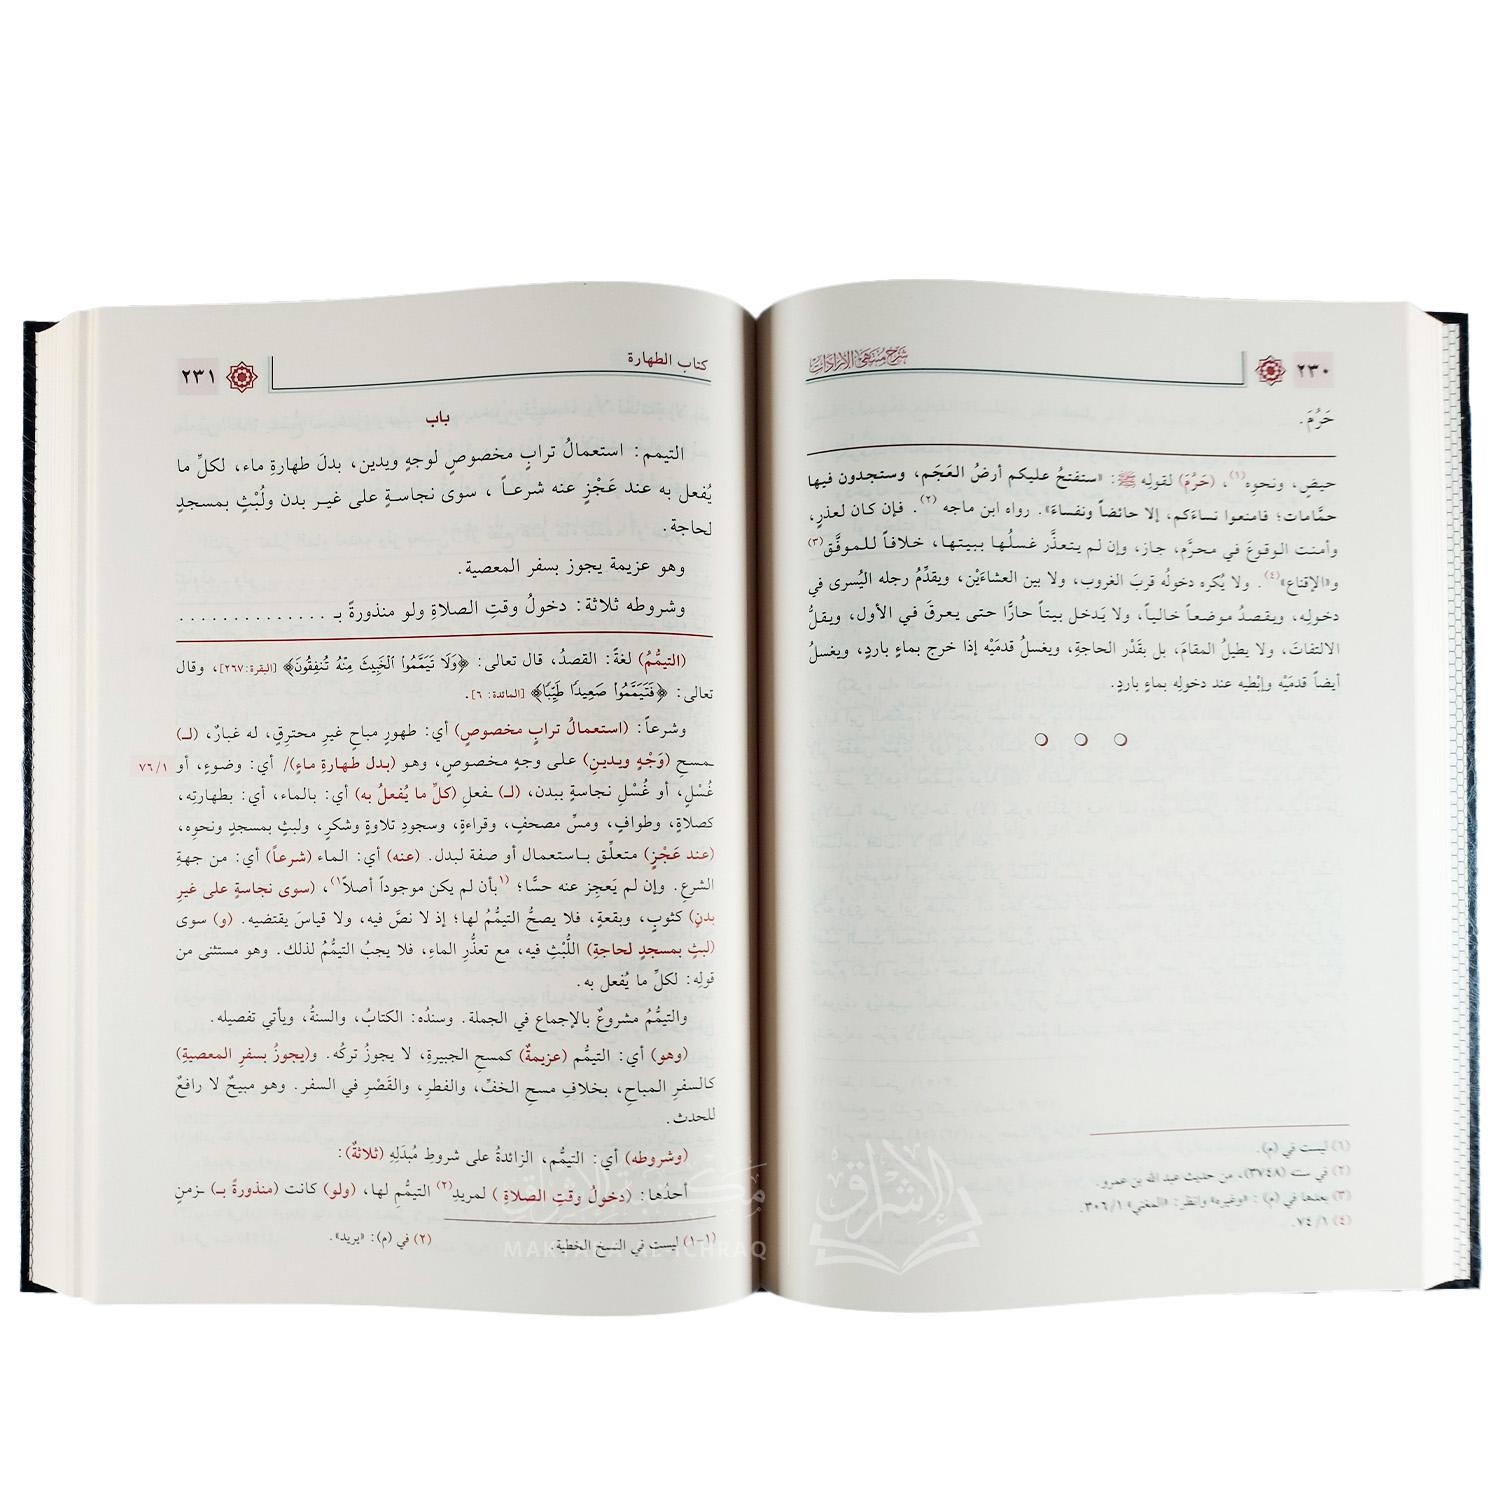 ٢٣٠
شرح منتهى الإرادات
حَرُمَ.
حيضٍ، ونحوِه(١)، (حَرُمَ) لقولِه ﷺ: «ستفتحُ عليكم أرضُ العَجَم، وستجدون فيها
حمَّامات؛ فامنعوا نساءَكم، إلا حائضاً ونفساءَ». رواه ابن ماجه (٢). فإن كان لعذرٍ،
وأمنت الوقوعَ في محرَّم، جاز، وإن لم يتعذَّر غسلُها ببيتها، خلافاً للموفَّق(٣)
و«الإقناع»(٤). ولا يُكره دخولُه قربَ الغروب، ولا بين العشاءَيْن، ويقدِّمُ رجله اليُسرى في
دخولِه، ويقصدُ موضعاً خالياً، ولا يَدخل بيتاً حارًّا حتى يعرقَ في الأول، ويقلُّ
الالتفاتَ، ولا يطيلُ المقامَ، بل بقَدْر الحاجةِ، ويغسل قدمَيْه إذا خرج بماءٍ باردٍ، ويغسلُ
أيضاً قدمَيْه وإبْطيه عند دخولِه بماءٍ باردٍ.
(١) ليست في (م).
(٢) في سننه (٣٧٤٨)، من حديث عبد الله بن عمرو.
(٣) بعدها في (م): «وغيره» وانظر: «المغني» ٣٠٦/١.
(٤) ٧٤/١.
كتاب الطهارة
٢٣١
باب
التيمم: استعمالُ ترابٍ مخصوصٍ لوجهٍ ويدين، بدلَ طهارةِ ماء، لكلِّ ما
يُفعل به عند عَجْزٍ عنه شرعاً، سوى نجاسةٍ على غير بدن ولُبْثٍ بمسجدٍ
لحاجة.
وهو عزيمة يجوز بسفر المعصية.
وشروطه ثلاثة: دخولُ وقتِ الصلاةِ ولو منذورةً بـ ..............
(التيمُّمُ) لغةً: القصدُ، قال تعالى: ﴿وَلَا تَيَمَّمُوا۟ ٱلْخَبِيثَ مِنْهُ تُنفِقُونَ﴾ [البقرة:٢٦٧]، وقال
تعالى: ﴿فَتَيَمَّمُوا۟ صَعِيدًا طَيِّبًا﴾ [المائدة: ٦].
وشرعاً: (استعمالُ ترابٍ مخصوصٍ) أي: طهورٍ مباحٍ غيرِ محترِقٍ، له غبارٌ، (لـ)
ـمسحِ (وَجْهٍ ويدينِ) على وجهٍ مخصوصٍ، وهو (بدل طهارةِ ماءٍ)/ أي: وضوءٍ، أو
٧٦/١
غُسْلٍ، أو غُسْلِ نجاسةٍ ببدن، (لـ) ـفعلِ (كلِّ ما يُفعلُ به) أي: بالماء، أي: بطهارتِه،
كصلاةٍ، وطوافٍ، ومسِّ مصحفٍ، وقراءةٍ، وسجودِ تلاوةٍ وشكرٍ، ولبثٍ بمسجدٍ ونحوِه،
(عند عَجْزٍ) متعلِّق باستعمال أو صفة لبدل. (عنه) أي: الماء (شرعاً) أي: من جهةِ
الشرعِ. وإن لم يَعجِز عنه حسًّا؛ (١بأن لم يكن موجوداً أصلاً١)، (سوى نجاسةٍ على غيرِ
بدنٍ) كثوبٍ، وبقعةٍ، فلا يصحُّ التيمُّمُ لها؛ إذ لا نصَّ فيه، ولا قياسَ يقتضيه. (و) سوى
(لبثٍ بمسجدٍ لحاجةٍ) اللُّبْثِ فيه، مع تعذُّرِ الماءِ، فلا يجبُ التيمُّمُ لذلك. وهو مستثنى من
قولِه: لكلِّ ما يُفعل به.
والتيمُّمُ مشروعٌ بالإجماع في الجملة. وسندُه: الكتابُ، والسنةُ، ويأتي تفصيله.
(وهو) أي: التيمُّم (عزيمةٌ) كمسح الجبيرةِ، لا يجوزُ تركُه. و(يجوزُ بسفرِ المعصيةِ)
كالسفرِ المباحِ، بخلافِ مسحِ الخفِّ، والفطرِ، والقَصْرِ في السفر. وهو مبيحٌ لا رافعٌ
للحدث.
(وشروطه) أي: التيمُّم، الزائدةُ على شروطِ مُبدَلِهِ (ثلاثةٌ):
أحدُها: (دخولُ وقتِ الصلاةِ) لمريدِ(٢) التيمُّمِ لها، (ولو) كانت (منذورةً بـ) ـزمنٍ
(١-١) ليست في النسخ الخطية.
(٢) في (م): «يريد».
مكتبة الإشراق
MAKTABA AL-ICHRAQ
الإشراق